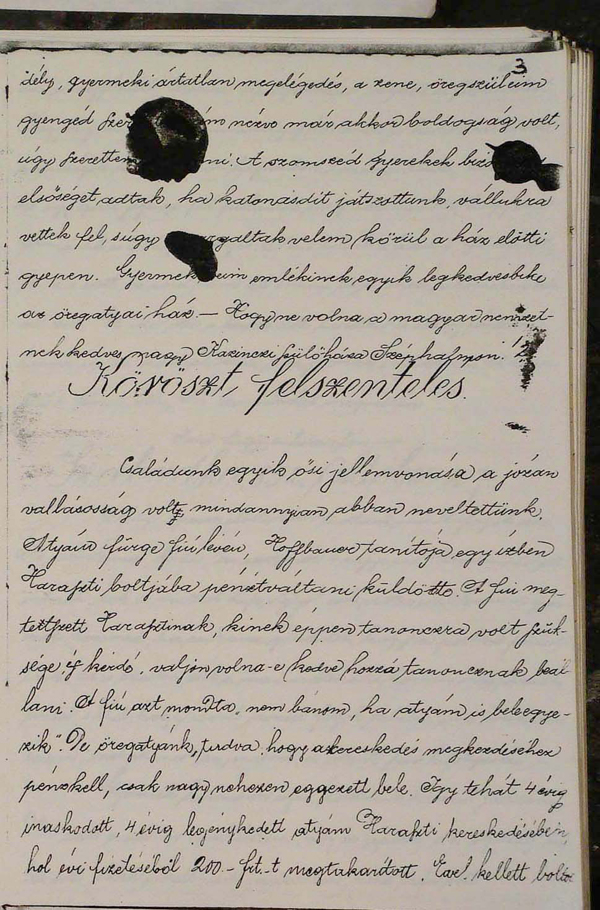 3
idély, gyermeki ártatlan megelégedés, a zene, öregszüleim
gyengéd nézve már akkor boldogság volt,
úgy A szomszéd gyerekek
elsőséget adtak, ha katonásdit játszottunk, vállukra
vettek fel, s úgy velem körül a ház előtti
gyepen. emlékinek egyik legkedvesbike
az öregatyai ház. — Hogy ne volna a magyar nemzet-
nek kedves, nagy Kazinczi szülőháza Széphalmon.
Köröszt felszenteles.
Családunk egyik ősi jellemvonása a józan
vallásosság volt, mindannyian abban neveltettünk.
Atyám fürge fiú lévén, Hoffbauer tanítója egy ízben
Haraszti boltjába pénzt váltani küldötte. A fiú meg-
tettszett Harasztinak, kinek éppen tanonczra volt szük-
sége és kérdé, valjon volna-e kedve hozzá tanoncznak beál-
lani. A fiú azt mondta, nem bánom, ha atyám is beleegye-
zik". De öregatyánk, tudva, hogy a kereskedés megkezdéséhez
pénz kell, csak nagy nehezen eggezett bele. Így tehát 4 évig
inaskodott, 4 évig legénykedett atyám Haraszti kereskedésében,
hol évi fizetéséből 200.- frt.-t megtakarított. Evvel kellett